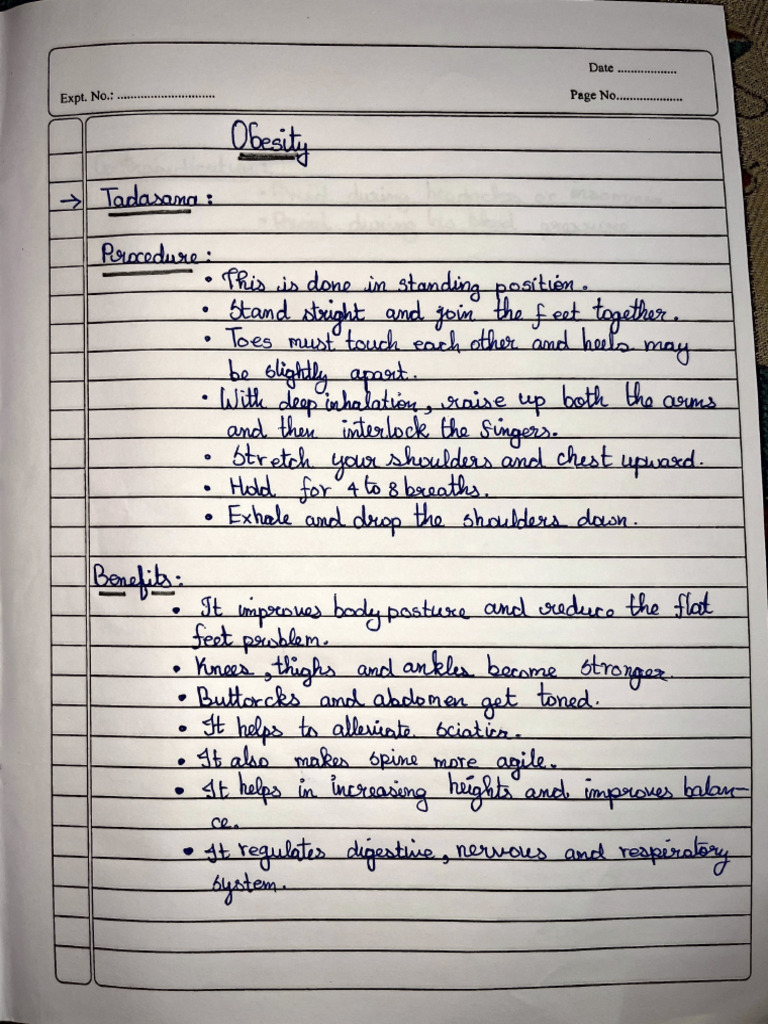 Date ..................
Expt. No.: ............................
Page No...................
Obesity
→ Tadasana :
Procedure :
• This is done in standing position.
• Stand stright and join the feet together.
• Toes must touch each other and heels may
be slightly apart.
• With deep inhalation, raise up both the arms
and then interlock the fingers.
• Stretch your shoulders and chest upward.
• Hold for 4 to 8 breaths.
• Exhale and drop the shoulders down.
Benefits :
• It improves body posture and reduce the flat
feet problem.
• Knees, thighs and ankles become stronger.
• Buttorcks and abdomen get toned.
• It helps to alleviate sciatica.
• It also makes spine more agile.
• It helps in increasing heights and improves balan-
ce.
• It regulates digestive, nervous and respiratory
system.